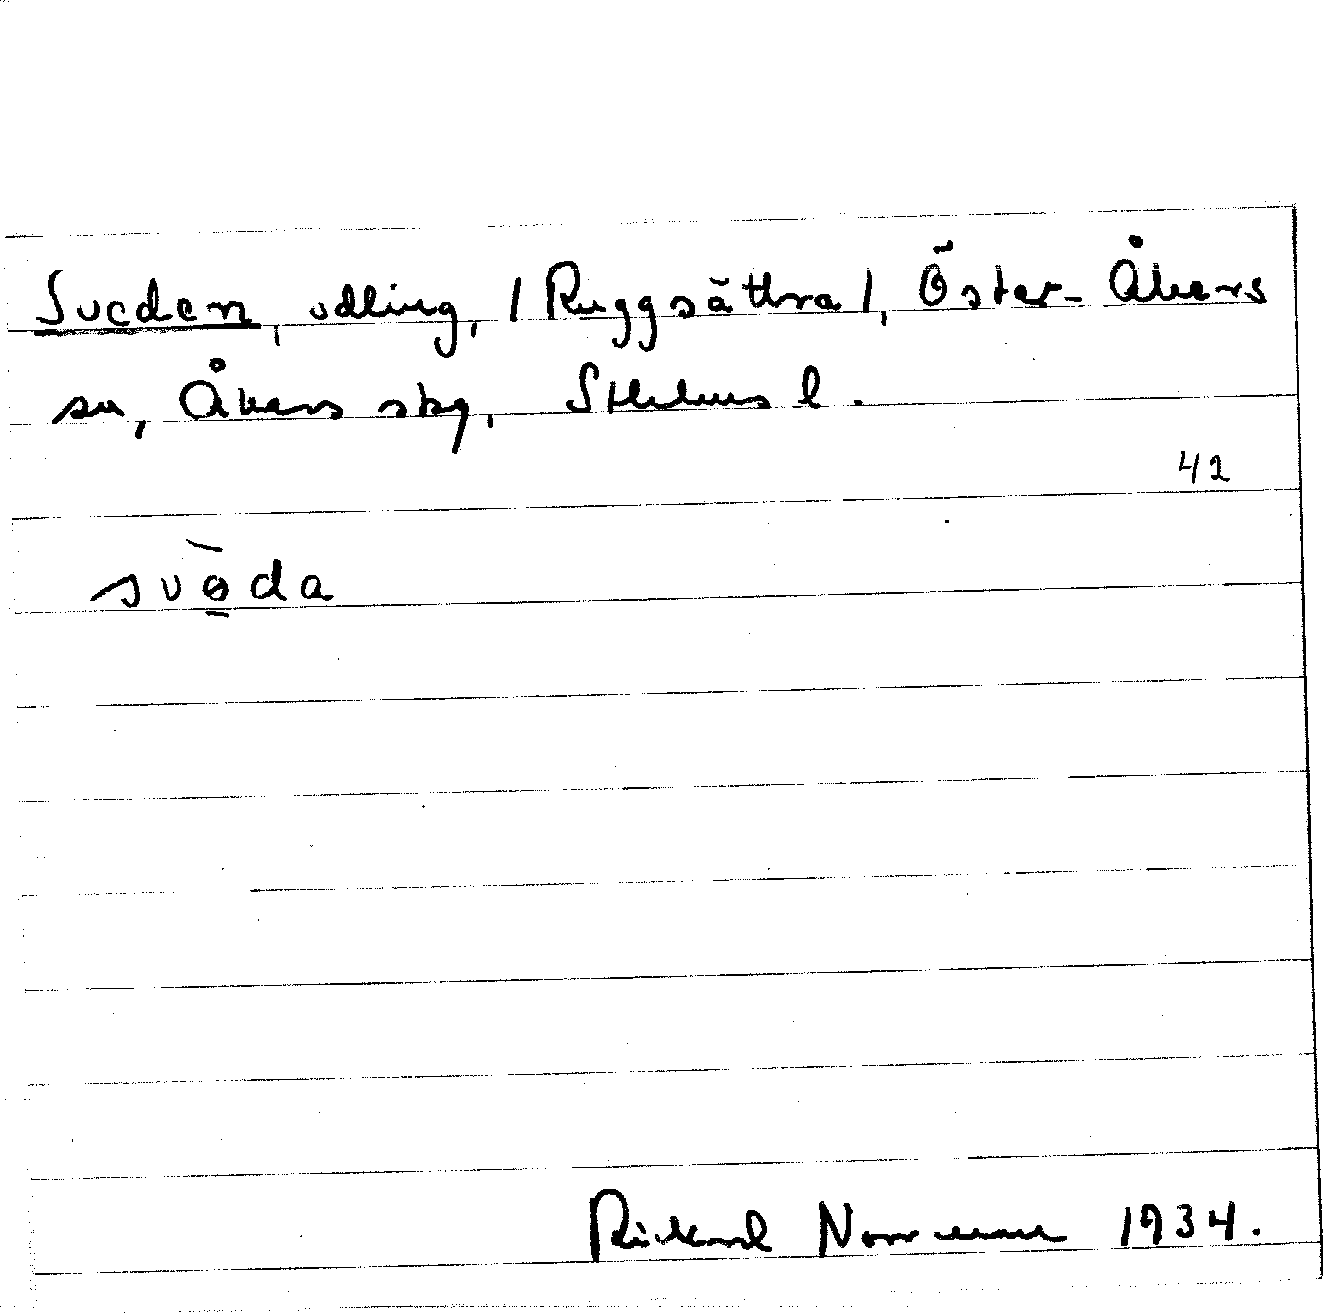 Sveden, odling, / Ruggsättra /, Öster-Åkers
sn, Åkers skg, Sthlms l.
42
svèda
Rickard Norrman 1934.